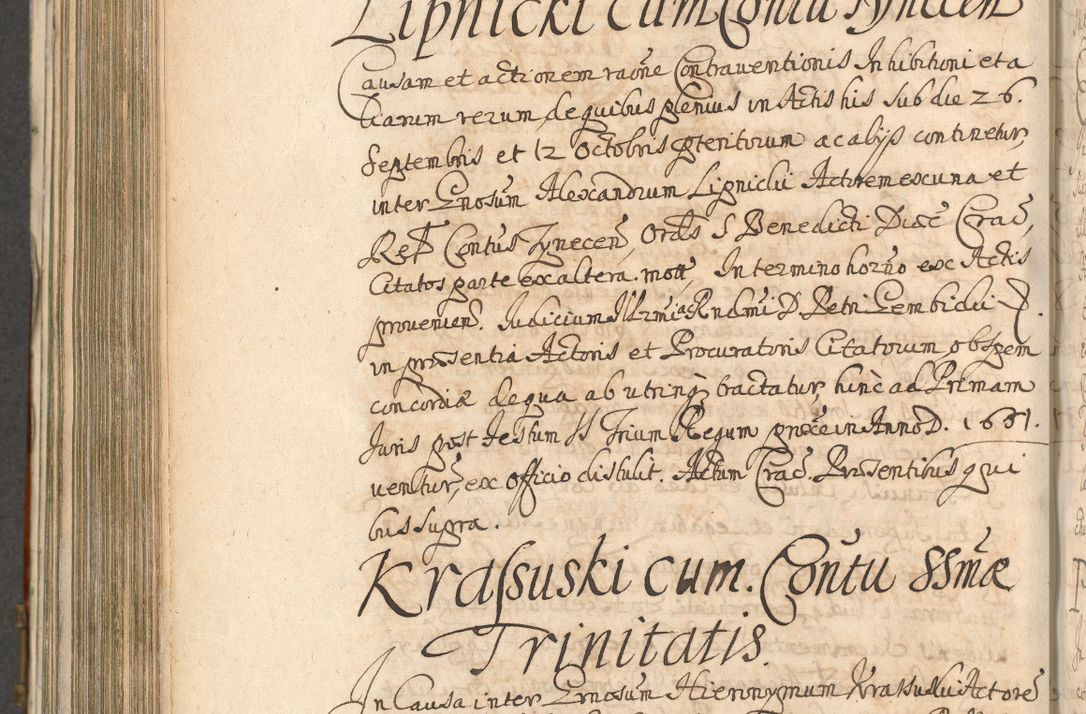 Lipnicki cum Contu Tynecen
Causam et actionem raõne Contrauentionis Inhibitioni et a
liarum rerum, de quibus plenius in Actis his sub die 26.
Septembris et 12 Octobris pteritorum ac alijs continetur,
inter Gnosum Alexandrum Lipnicki Actorem ex una et
Rel. Contus Tynecen, Ordis S Benedicti Diæc Crac,
Citatos parte ex altera. mott, In termino horno ex Actis
prouenien. Iudicium Illrmi a Rndmi D. Petri Gembicki
in præsentia Actoris et Procuratoris Citatorum, ob spem
concordiæ de qua ab utrinq tractatur, hinc ad Primam
Iuris post Festum SS Trium Regum proxe in Anno D. 1651.
venitur, ex officio distulit. Actum Crac. Præsentibus qui
bus supra.
Krassuski cum. Contu SSmæ
Trinitatis.
In Causa inter Gnosum Hieronymum Krassuski Actorē